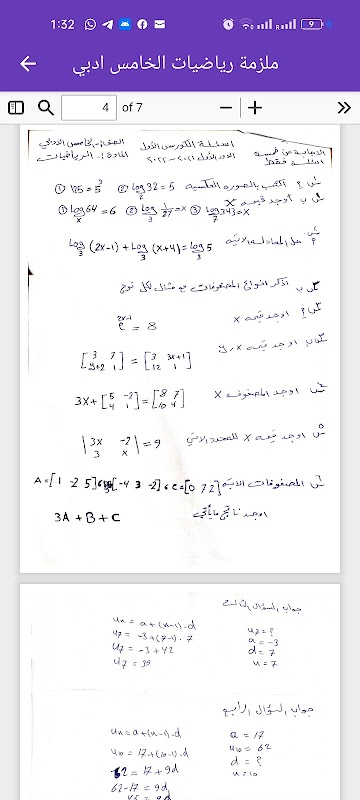 1:32
9
ملزمة رياضيات الخامس ادبي
4 of 7
الاجابة عن خمسة اسئلة فقط
اسئلة الكورس الأول
الدور الأول ٢٠٢١-٢٠٢٢
الصف:- الخامس الادبي
المادة:- الرياضيات
س١ P اكتب بالصورة العكسية ① 125 = 5³ ② log₂32 = 5
ب اوجد قيمة X ① logₓ64 = 6 ② log₃ 1/27 = x ③ log₇343 = x
س٢ P حل المعادلة الاتية log₃(2x-1) + log₃(x+4) = log₃5
ب اذكر انواع المصفوفات مع مثال لكل نوع
س٣ P اوجد قيمة x 2^(2x-1) = 8
ب اوجد قيمة x، y [3 7 / y+2 1] = [3 3x+1 / 12 1]
س اوجد المصفوفة X 3X + [5 -2 / 4 1] = [8 7 / 10 4]
س٥ اوجد قيمة x للمحدد الاتي |3x -2 / 3 x| = 9
س٦ المصفوفات الاتية A = [1 -2 5] [-4 3 -2] C = [0 7 2]
اوجد ناتج مايأتي
3A + B + C
جواب السؤال الثالث
uₙ = a + (n-1)·d
u₇ = -3 + (7-1)·7
u₇ = -3 + 42
u₇ = 39
u₇ = ?
a = -3
d = 7
n = 7
جواب السؤال الرابع
uₙ = a + (n-1)·d
u₁₀ = 17 + (10-1)·d
62 = 17 + 9d
62-17 = 9d
45 = 9d
a = 17
u₁₀ = 62
d = ?
n = 10